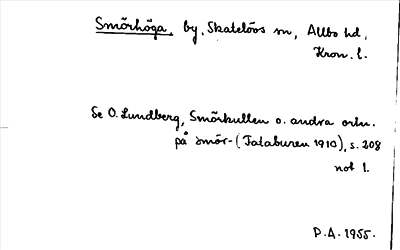 Smörhöga, by, Skatelövs sn, Allbo hd,
Kron. l.
Se O. Lundberg, Smörkullen o. andra ortn.
på smör- (Fataburen 1910), s. 208
not 1.
D.A. 1955.